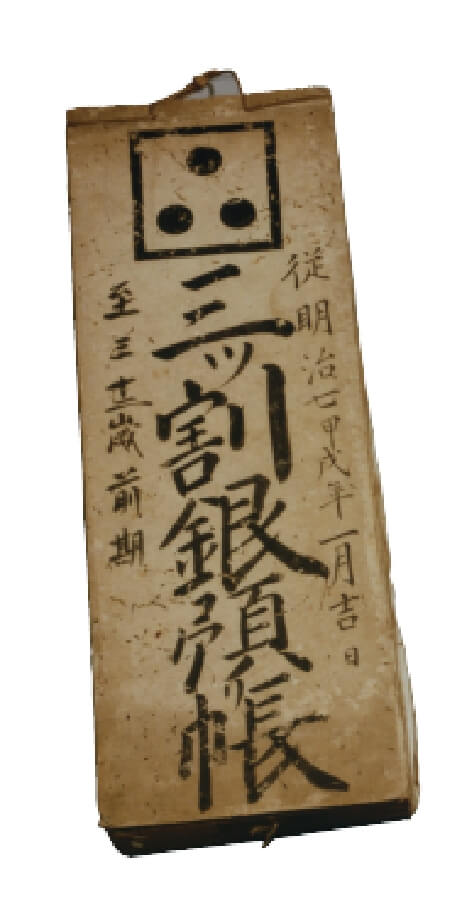 従明治七甲戌年一月吉日
三ッ割銀預リ帳
至三十二歳前期